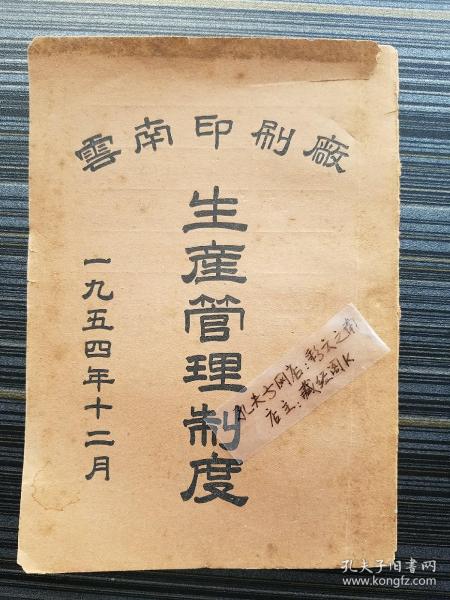 雲南印刷廠
生産管理制度
一九五四年十二月
孔夫子网店：彩文之南
店主：藏经阁K
孔夫子旧书网
www.kongfz.com